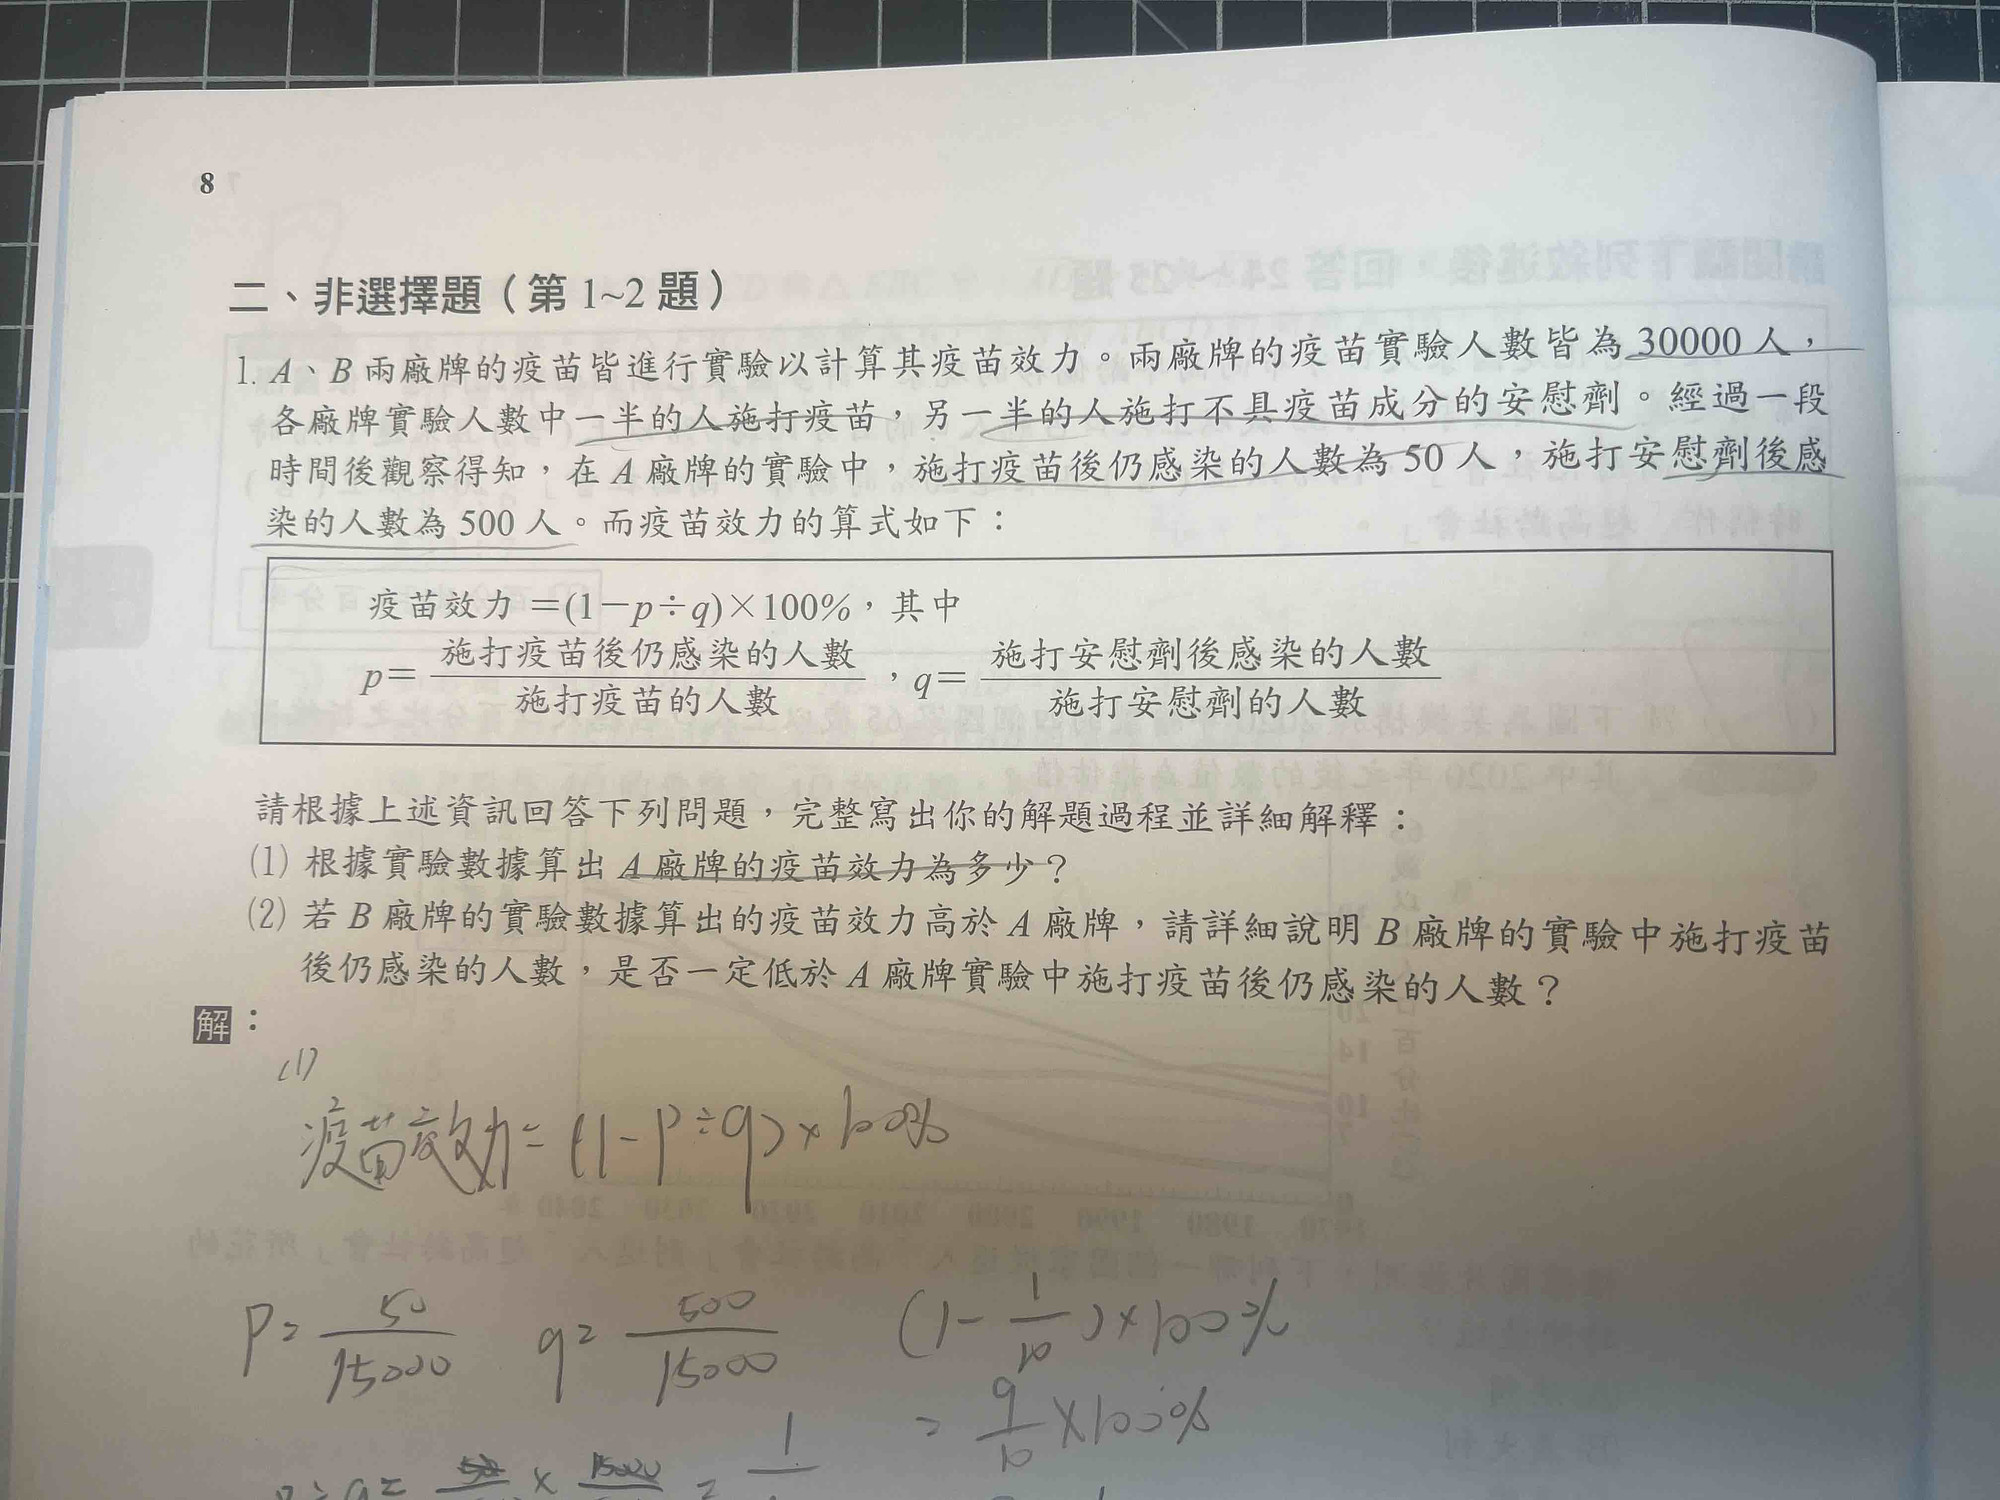 8
二、非選擇題（第 1~2 題）
1. A、B 兩廠牌的疫苗皆進行實驗以計算其疫苗效力。兩廠牌的疫苗實驗人數皆為 30000 人，
各廠牌實驗人數中一半的人施打疫苗，另一半的人施打不具疫苗成分的安慰劑。經過一段
時間後觀察得知，在 A 廠牌的實驗中，施打疫苗後仍感染的人數為 50 人，施打安慰劑後感
染的人數為 500 人。而疫苗效力的算式如下：
疫苗效力 =(1−p÷q)×100%，其中
p= 施打疫苗後仍感染的人數 / 施打疫苗的人數 ，q= 施打安慰劑後感染的人數 / 施打安慰劑的人數
請根據上述資訊回答下列問題，完整寫出你的解題過程並詳細解釋：
(1) 根據實驗數據算出 A 廠牌的疫苗效力為多少？
(2) 若 B 廠牌的實驗數據算出的疫苗效力高於 A 廠牌，請詳細說明 B 廠牌的實驗中施打疫苗
後仍感染的人數，是否一定低於 A 廠牌實驗中施打疫苗後仍感染的人數？
解：
(1)
疫苗效力=(1-P÷q)×100%
P= 50/15000 q= 500/15000 (1-1/10)×100%
= 9/10 ×100%